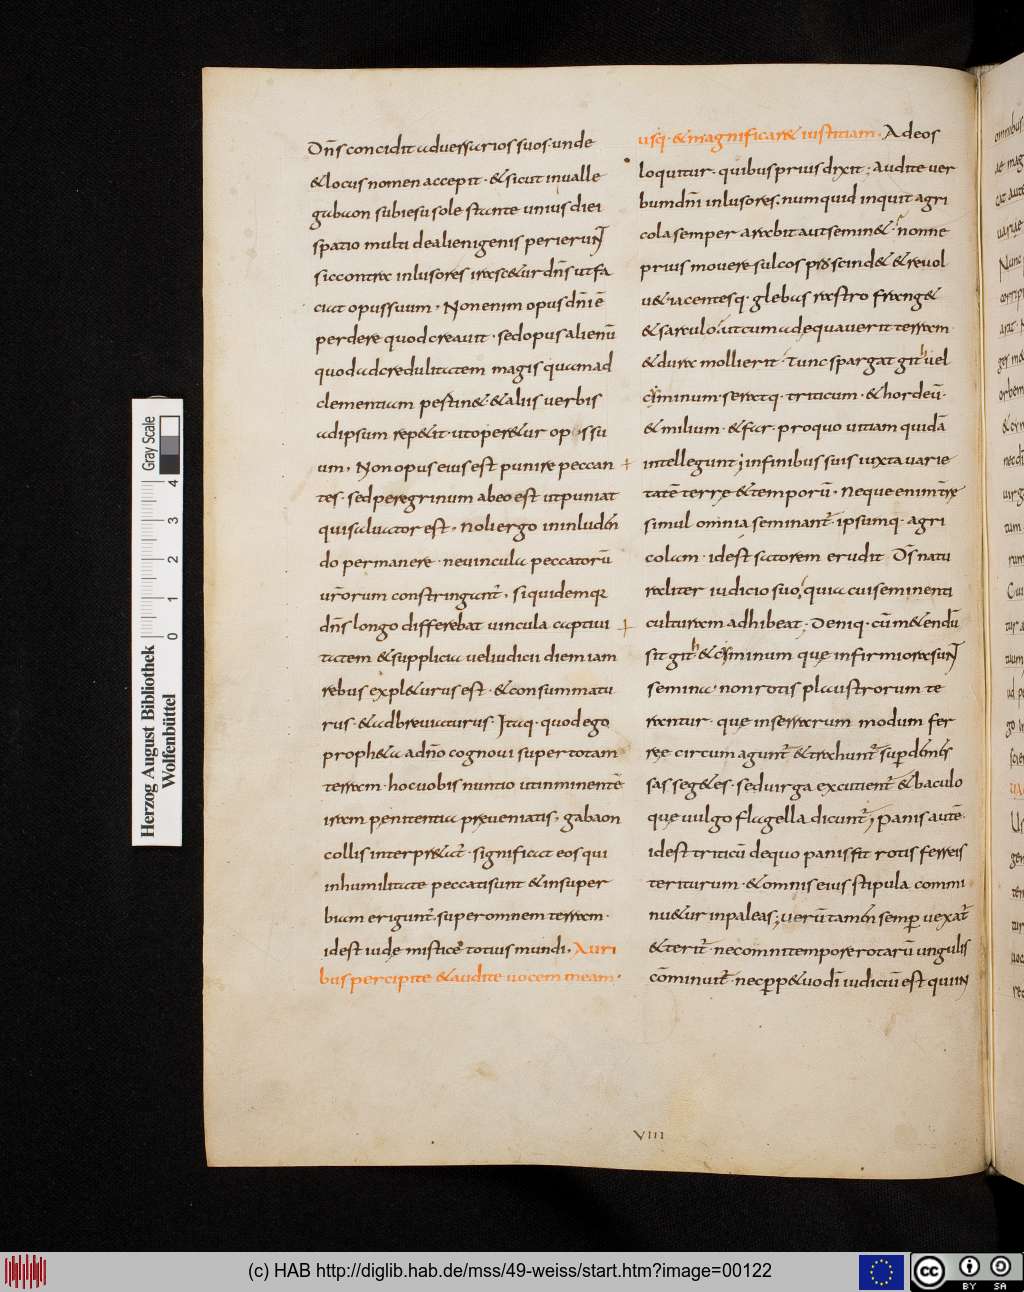 Dn̄s concidit aduersarios suos unde
& locus nomen accepit · & sicut in ualle
gabaon sub iesu sole stante unius diei
spatio multi de alienigenis perierunt
sic contra inlusores irasc&ur dn̄s ut fa
ciat opus suum · Non enim opus dn̄i ē
perdere quod creauit · sed opus alienū
quod ad credulitatem magis quam ad
clementiam pertin& & aliis uerbis
ad ipsum rep&it · ut oper&ur opus su
um · Non opus eius est punire peccan
tes · sed peregrinum ab eo est ut puniat
qui saluator est · Noli ergo in inluden
do permanere · ne uincula peccatorū
ur̄orum constringant̄ · siquidem quia
dn̄s longo differebat uincula captiui
tatem & supplicia uel iudicii diem iam
rebus expl&urus est · & consummatu
rus · & adbreuiaturus · Itaq · quod ego
proph&a a dn̄o cognoui super totam
terram · hoc uobis nuntio ut inminentē
iram penitentia preueniatis · gabaon
collis interpr&at̄ · significat eos qui
in humilitate peccati sunt & insuper
biam erigunt̄ super omnem terram ·
id est iude mistice totius mundi · Auri
bus percipite & audite uocem meam ·
usq · & magnificar& iustitiam · Ad eos
loquitur · quibus prius dixit ; Audite uer
bum dn̄i inlusores · numquid inquit agri
cola semper arabit aut semin& · nonne
prius mouere sulcos & proscind& & reuol
u& · iacentesq · glebas rastro frang&
& sarculo · ut cum adequauerit terram
& dura mollierit · tunc spargat gith uel
ciminum · seratq · triticum · & hordeū ·
& milium · & far · pro quo uitiam quidā
intellegunt ; in finibus suis iuxta uarie
tatē terre & temporū · Neque enim in re
simul omnia seminant̄ · ipsumq · agri
colam · id est satorem erudit Ds̄ natu
raliter iudicio suo , quia cui seminenti
culturam adhibeat ; Deniq · cū m&endū
sit gith & ciminum que infirmiora sunt
semina · non rotis plaustrorum te
rantur · que in serrarum modum fer
ree circum agunt̄ & trahunt̄ sup den
sas seg&es · sed uirga excutient̄ & baculo
que uulgo flagella dicunt̄ ; Panis autē ·
id est triticū de quo panis fit rotis ferreis
teriturum · & omnis eius stipula commi
nu&ur in paleas ; uerū tamen semp uexat̄
& terit̄ · nec omni tempore rotarū ungulis
cōminuit̄ · nec pp&uo di iudiciū est qui in
VIII
Gray Scale
0 1 2 3 4
Herzog August Bibliothek
Wolfenbüttel
(c) HAB http://diglib.hab.de/mss/49-weiss/start.htm?image=00122
cc
BY SA